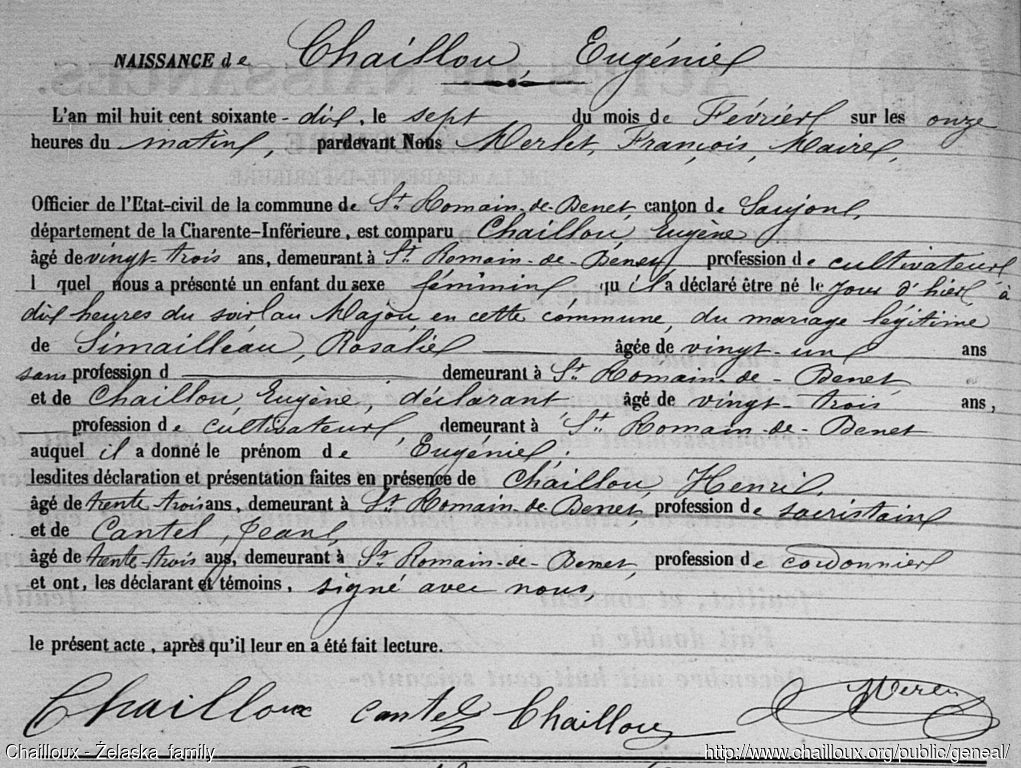 NAISSANCE de Chaillou, Eugénie
L'an mil huit cent soixante-dix, le sept du mois de Février sur les onze
heures du matin, pardevant Nous Merlet, François, Maire,
Officier de l'Etat-civil de la commune de St Romain-de-Benet, canton de Saujon,
département de la Charente-Inférieure, est comparu Chaillou, Eugène
âgé de vingt-trois ans, demeurant à St Romain-de-Benet, profession de cultivateur
lequel nous a présenté un enfant du sexe féminin, qu'il a déclaré être né le jour d'hier à
dix heures du soir au Majou, en cette commune, du mariage légitime
de Simailleau, Rosalie âgée de vingt-un ans
sans profession d demeurant à St Romain-de-Benet
et de Chaillou, Eugène, déclarant âgé de vingt-trois ans,
profession de cultivateur, demeurant à St Romain-de-Benet
auquel il a donné le prénom de Eugénie.
lesdites déclaration et présentation faites en présence de Chaillou, Henri,
âgé de trente-trois ans, demeurant à St Romain-de-Benet, profession de sacristain
et de Cantel, Jean,
âgé de trente-trois ans, demeurant à St Romain-de-Benet, profession de cordonnier
et ont, les déclarant et témoins, signé avec nous
le présent acte, après qu'il leur en a été fait lecture.
Chailloux Cantel Chaillou
Chailloux - Żelaska family http://www.chailloux.org/public/geneal/